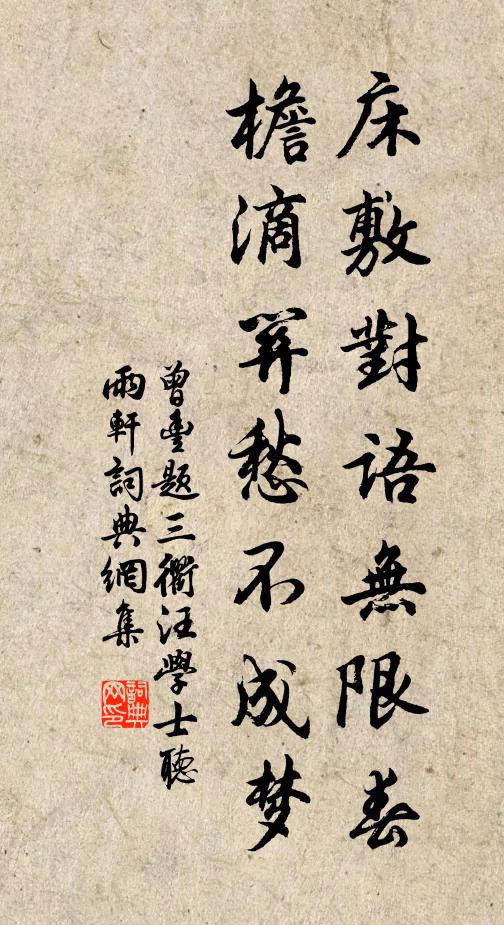 床敷對語無限春
檐滴筭愁不成梦
曾豐题三衢汪學士聽
雨軒詞典網集
詞典
网印